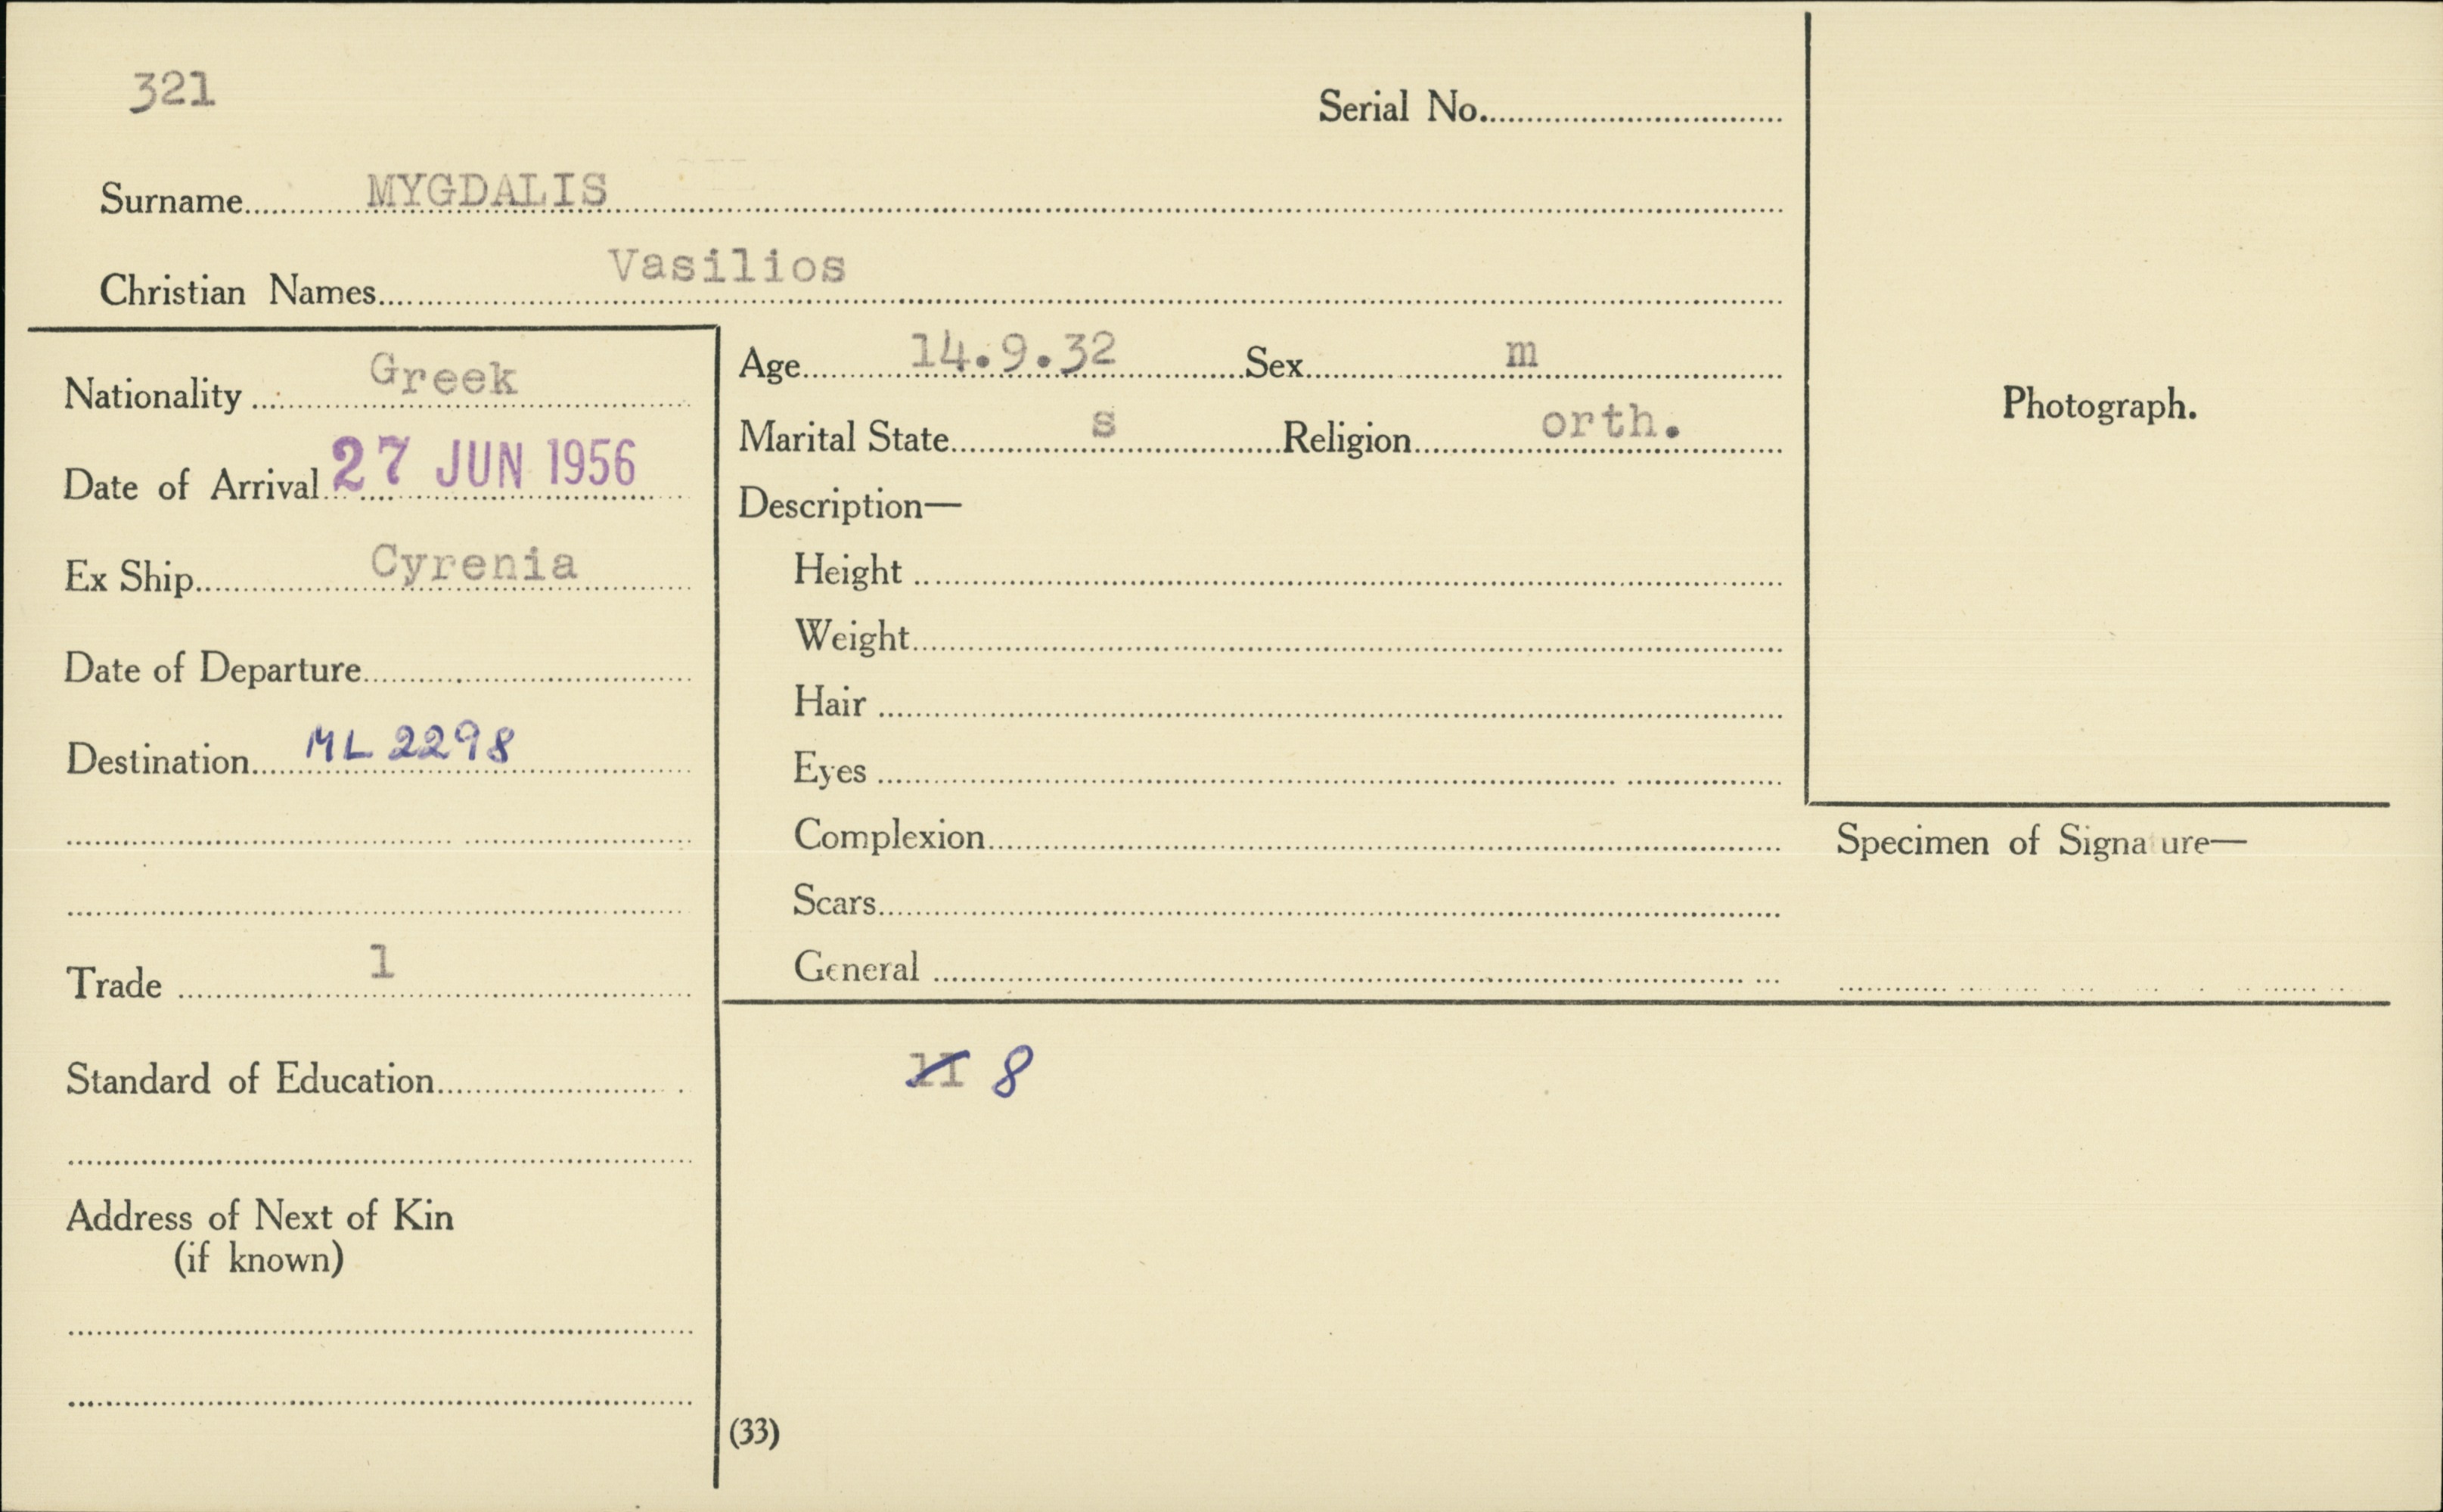 321
Serial No.
Surname MYGDALIS
Christian Names Vasilios
Nationality Greek
Date of Arrival 27 JUN 1956
Ex Ship Cyrenia
Date of Departure
Destination ML 2298
Trade 1
Standard of Education
Address of Next of Kin
(if known)
Age 14.9.32 Sex m
Marital State s Religion orth.
Description—
Height
Weight
Hair
Eyes
Complexion
Scars
General
Photograph.
Specimen of Signa ure—
11 8
(33)